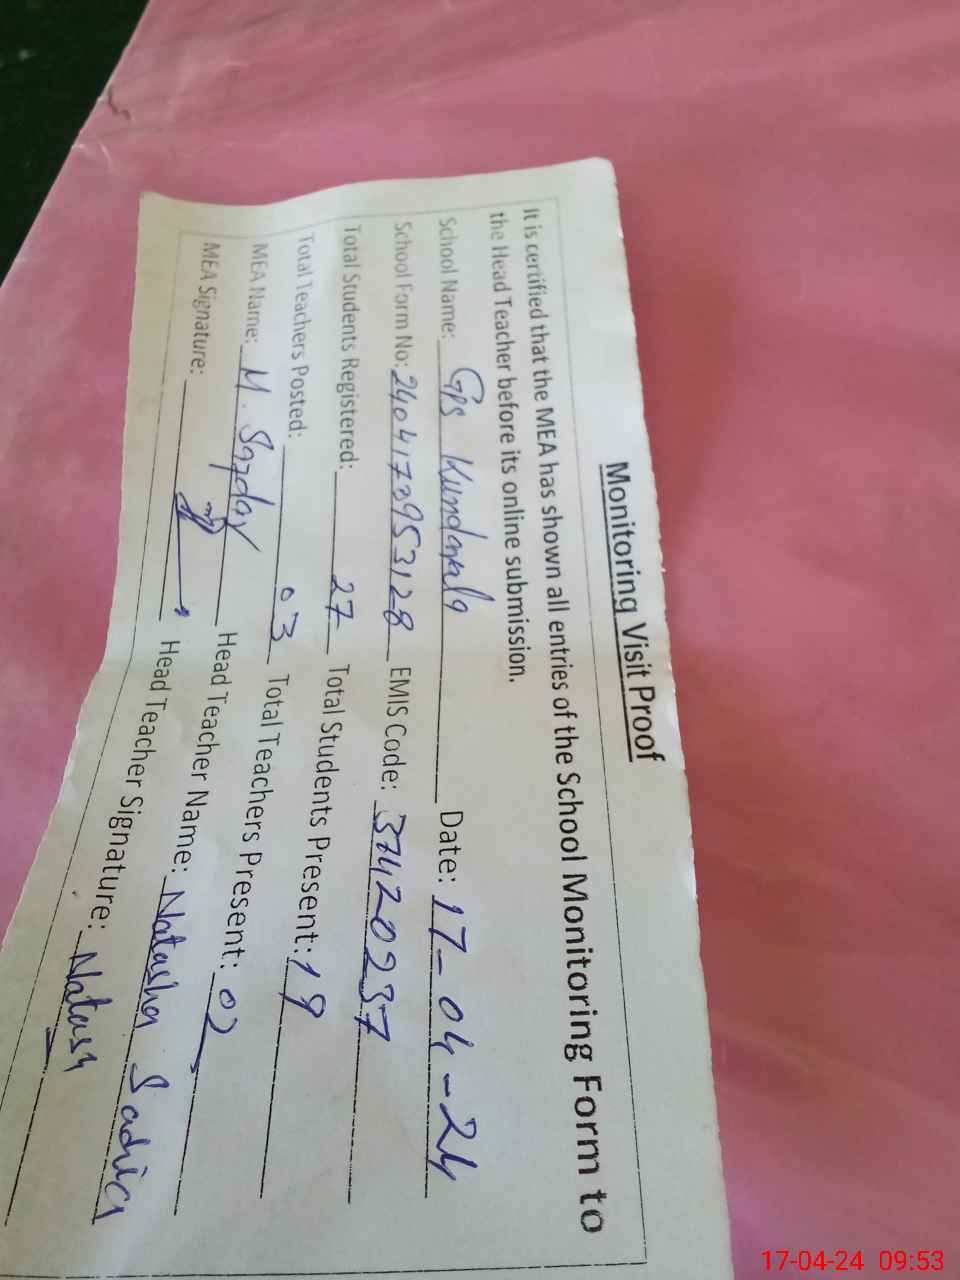 Monitoring Visit Proof
It is certified that the MEA has shown all entries of the School Monitoring Form to
the Head Teacher before its online submission.
School Name: GPS Kundanala Date: 17-04-24
School Form No: 24041739953128 EMIS Code: 37420237
Total Students Registered: 27 Total Students Present: 19
Total Teachers Posted: 03 Total Teachers Present: 02
MEA Name: M. Head Teacher Name: Natasha Sadia
MEA Signature: Head Teacher Signature: Natash
17-04-24 09:53